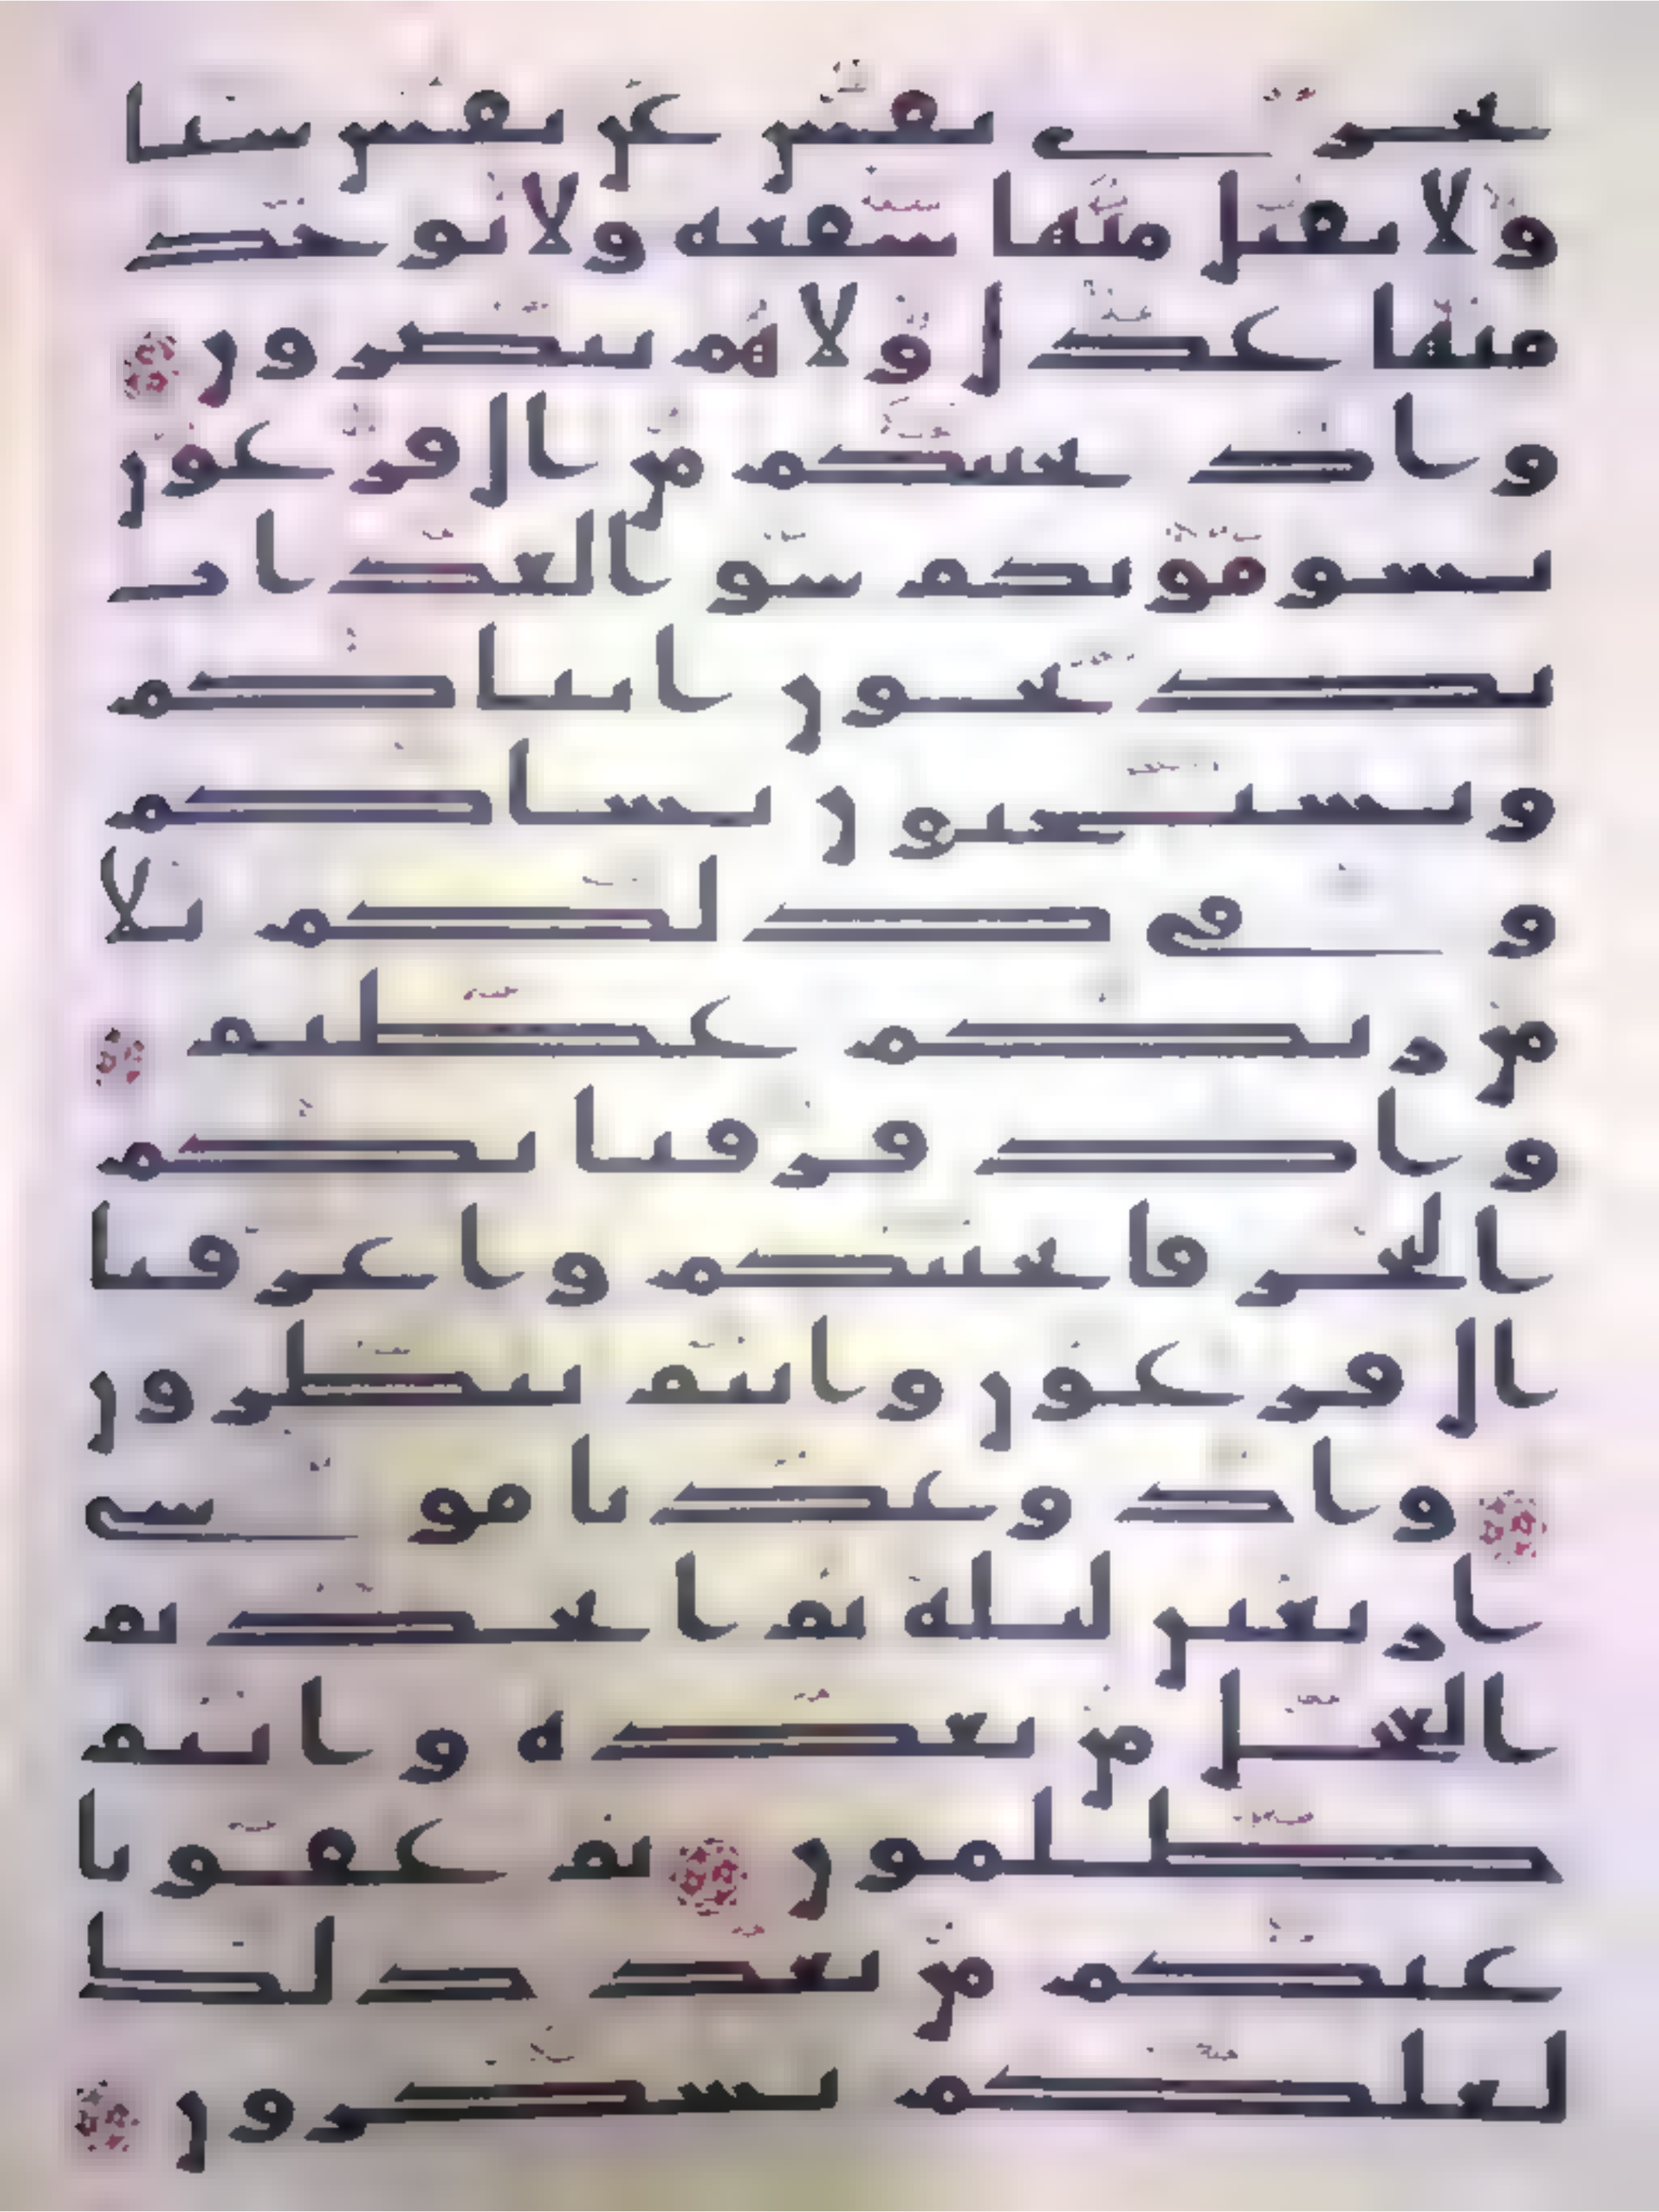 تجزى نفس عن نفس شيا
ولا يقبل منها شفعة ولا يوخذ
منها عدل ولا هم ينصرون
واذ نجينكم من ال فرعون
يسومونكم سو العذاب
يذبحون ابناكم
ويستحيون نساكم
وفى ذلكم بلا
من ربكم عظيم
واذ فرقنا بكم
البحر فانجينكم واغرقنا
ال فرعون وانتم تنظرون
واذ وعدنا موسى
اربعين ليلة ثم اتخذتم
العجل من بعده وانتم
ظلمون ثم عفونا
عنكم من بعد ذلك
لعلكم تشكرون